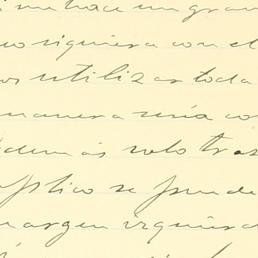 me hace un gran
siquiera con el
utilizar toda
manera seria co
demas solo tras
se puede
margen izquierd